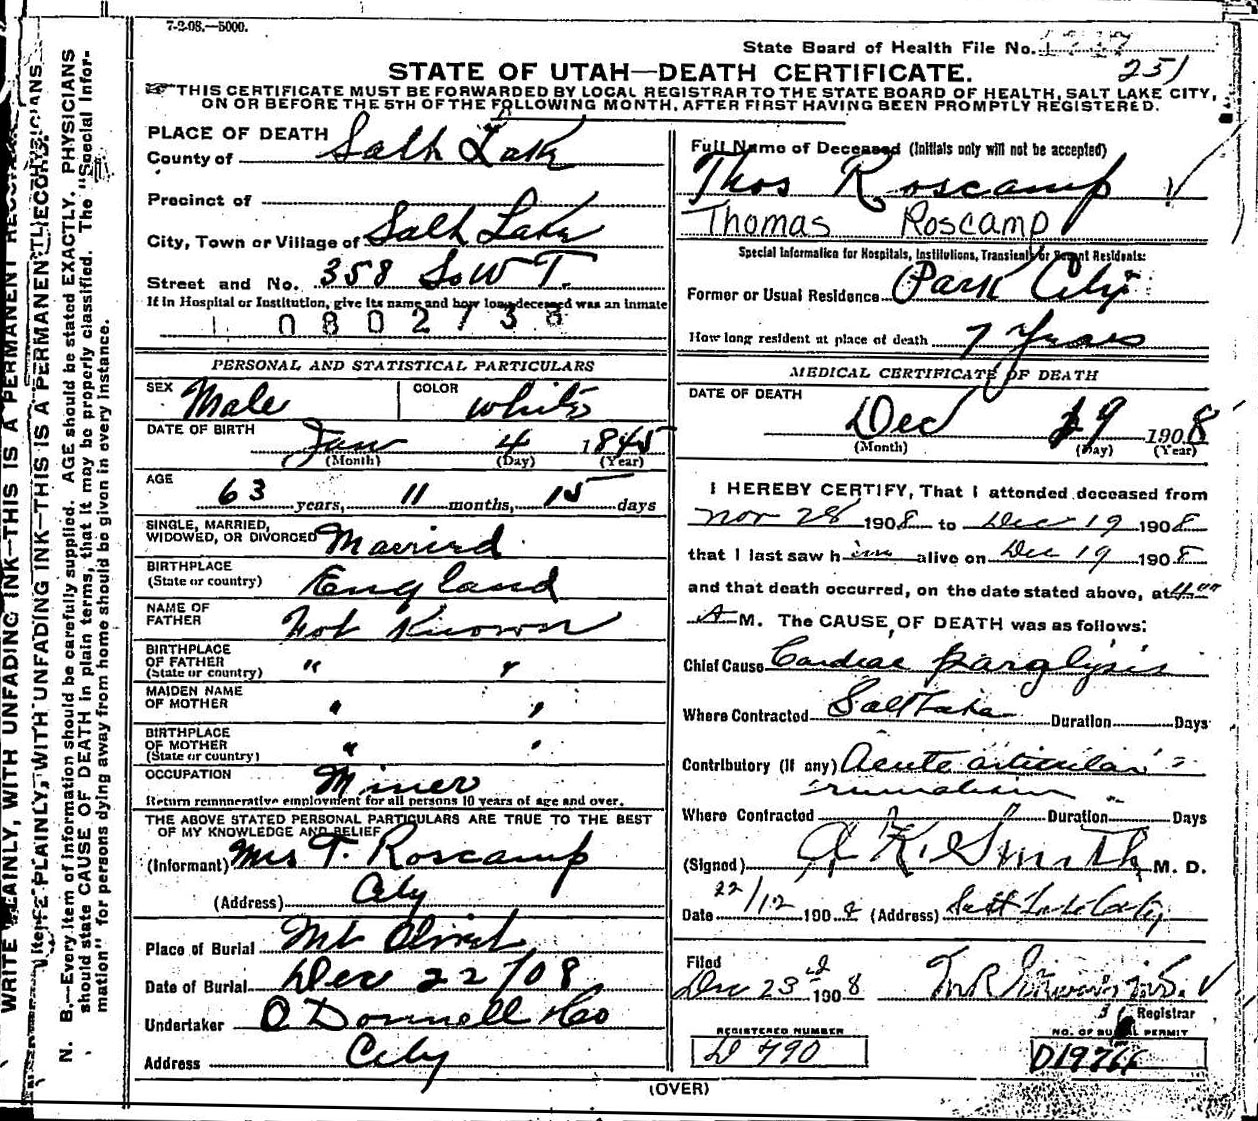 7-2-08.—5000.
State Board of Health File No.
251
STATE OF UTAH—DEATH CERTIFICATE.
THIS CERTIFICATE MUST BE FORWARDED BY LOCAL REGISTRAR TO THE STATE BOARD OF HEALTH, SALT LAKE CITY,
ON OR BEFORE THE 5TH OF THE FOLLOWING MONTH, AFTER FIRST HAVING BEEN PROMPTLY REGISTERED.
PLACE OF DEATH
County of Salt Lake
Precinct of
City, Town or Village of Salt Lake
Street and No. 358 So W T.
If in Hospital or Institution, give its name and how long deceased was an inmate
0802738
PERSONAL AND STATISTICAL PARTICULARS
SEX Male COLOR White
DATE OF BIRTH Jan 4 1845
(Month) (Day) (Year)
AGE
63 years, 11 months, 15 days
SINGLE, MARRIED,
WIDOWED, OR DIVORCED Married
BIRTHPLACE
(State or country) England
NAME OF
FATHER Not Known
BIRTHPLACE
OF FATHER " "
(State or country)
MAIDEN NAME
OF MOTHER " "
BIRTHPLACE
OF MOTHER " "
(State or country)
OCCUPATION Miner
Return remunerative employment for all persons 10 years of age and over.
THE ABOVE STATED PERSONAL PARTICULARS ARE TRUE TO THE BEST
OF MY KNOWLEDGE AND BELIEF
(Informant) Mrs T. Roscamp
(Address) City
Place of Burial Mt Olivet
Date of Burial Dec 22/08
Undertaker O Donnell & Co
Address City
Full Name of Deceased (Initials only will not be accepted)
Thos Roscamp
Thomas Roscamp
Special Information for Hospitals, Institutions, Transients or Recent Residents:
Former or Usual Residence Park City
How long resident at place of death 7 Years
MEDICAL CERTIFICATE OF DEATH
DATE OF DEATH
Dec 19 1908
(Month) (Day) (Year)
I HEREBY CERTIFY, That I attended deceased from
Nov 28 1908 to Dec 19 1908
that I last saw him alive on Dec 19 1908
and that death occurred, on the date stated above, at 4:00
A M. The CAUSE OF DEATH was as follows:
Chief Cause Cardiac paralysis
Where Contracted Salt Lake Duration Days
Contributory (If any) Acute articular
rumatism
Where Contracted Duration Days
(Signed) K. Smith M. D.
Date 22/12 1908 (Address) Salt Lake City
Filed
Dec 23rd 1908
Registrar
REGISTERED NUMBER
D 490
NO. OF BURIAL PERMIT
D19766
(OVER)
WRITE PLAINLY, WITH UNFADING INK—THIS IS A PERMANENT RECORD
WRITE PLAINLY, WITH UNFADING INK—THIS IS A PERMANENT RECORD.
N. B.—Every item of information should be carefully supplied. AGE should be stated EXACTLY. PHYSICIANS
should state CAUSE OF DEATH in plain terms, that it may be properly classified. The "Special Infor-
mation" for persons dying away from home should be given in every instance.